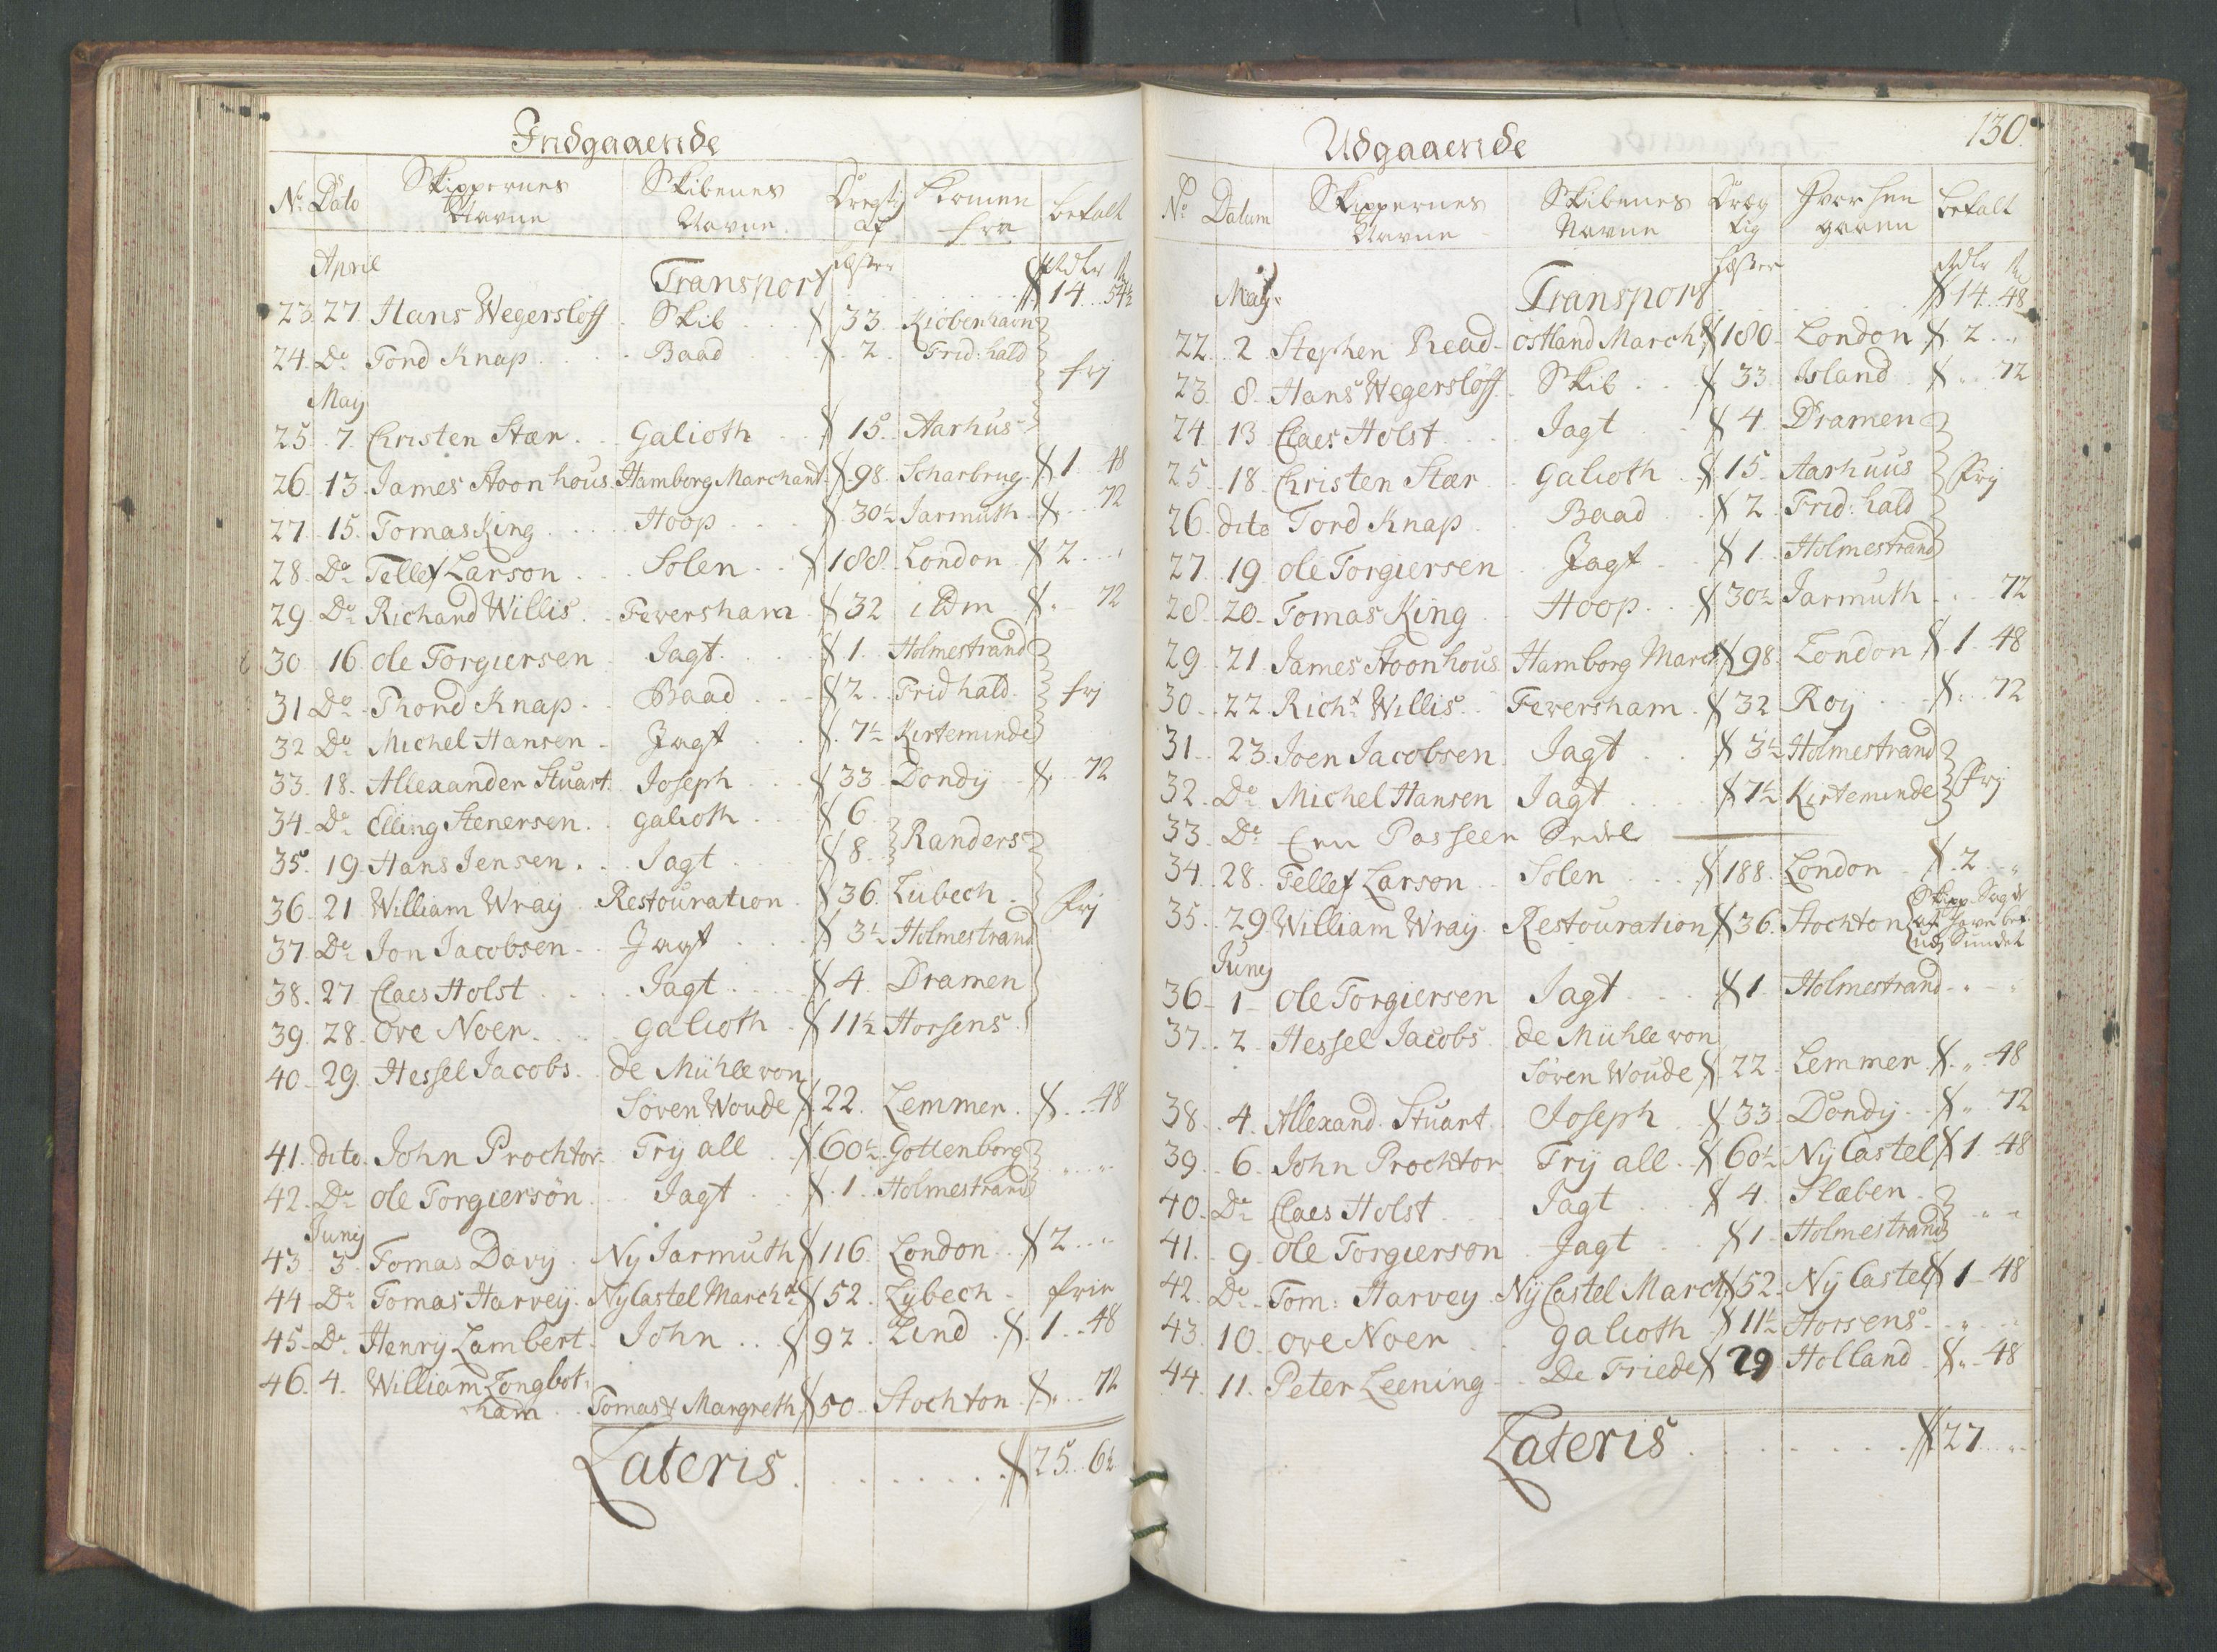 Indgaaende
No Dato Skippernes Navne Skibenes Navne Dregtig af Komen fra betalt
April læster Rdlr
Transport 14 54½
23 27 Hans Wegerslöff Skib 33 Kiöbenhavn
24 Do Tord Knap Baad 2 Frid:hald frj
May
25 7 Christen Stær Galioth 15 Aarhus
26 13 James Stoonhous Hamborg Marchant 98 Scharbrug 1 48
27 15 Tomas King Hoop 30½ Jarmuth 72
28 Do Tellef Larson Solen 188 London 2
29 Do Richard Willis Feversham 32 idm 72
30 16 Ole Torgiersen Jagt 1 Holmestrand
31 Do Thord Knap Baad 2 Frid hald frj
32 Do Michel Hansen Jagt 7½ Kirteminde
33 18 Allexander Stuart Joseph 33 Dondij 72
34 Do Elling Stenersen galioth 6
35 19 Hans Jensen Jagt 8 Randers
36 21 William Wray Restouration 36 Lübech frj
37 Do Jon Jacobsen Jagt 3½ Holmestrand
38 27 Claes Holst Jagt 4 Dramen
39 28 Ove Noer galioth 11½ Horsens
40 29 Hessel Jacobs de Mühle von
Söven Woude 22 Lemmer 48
41 dito John Prochtor Try all 60½ Gottenborg
42 Do Ole Torgiersön Jagt 1 Holmestrand
Junij
43 3 Tomas Davy Ny Jarmuth 116 London 2
44 Do Tomas Harvey NyCastel Marcht 52 Lybech frie
45 Do Henry Lambert John 92 Lind 1 48
46 4 William Longbot:
ham Tomas & Margreth 50 Stochton 72
Lateris 25 6½
Udgaaende 130
No Datum Skippernes Navne Skibenes Navne Dræg tig Hvor hen gaaen betalt
læster Rdlr
May Transport 14 48
22 2 Stephen Read Ostland March 180 London 2
23 8 Hans Wegerslöff Skib 33 Island 72
24 13 Claes Holst Jagt 4 Dramen
25 18 Christen Stær galioth 15 Aarhuus frj
26 dito Tord Knap Baad 2 Frid:hald
27 19 Ole Torgiersen Jagt 1 Holmestrand
28 20 Tomas King Hoop 30½ Jarmuth 72
29 21 James Stoonhous Hamborg March 98 London 1 48
30 22 Richd Willis Feversham 32 Roy 72
31 23 Joen Jacobsen Jagt 3½ Holmestrand
32 Do Michel Hansen Jagt 7½ Kirteminde frj
33 Do Een Passeer Sedel
34 28 Tellef Larson Solen 188 London 2
35 29 William Wray Restouration 36 Stochton Skipp Sagde at have bet: udj Sundet
Junij
36 1 Ole Torgiersen Jagt 1 Holmestrand
37 2 Hessel Jacobs de Mühle von
Söven Woude 22 Lemmer 48
38 4 Allexand. Stuart Joseph 33 Dondij 72
39 6 John Prochtor Try all 60½ Ny Castel 1 48
40 Do Claes Holst Jagt 4 Slæben
41 9 Ole Torgierson Jagt 1 Holmestrand
42 Do Tom: Harvey NyCastel March 52 Ny Castel 1 48
43 10 ove Noer galioth 11½ Horsens
44 11 Peter Leening De Friede 29 Holland 48
Lateris 27